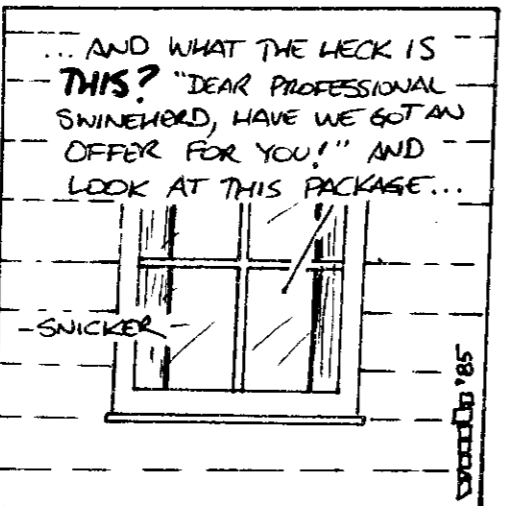 ... AND WHAT THE HECK IS
THIS? "DEAR PROFESSIONAL
SWINEHERD, HAVE WE GOT AN
OFFER FOR YOU!" AND
LOOK AT THIS PACKAGE...
-SNICKER-
'85